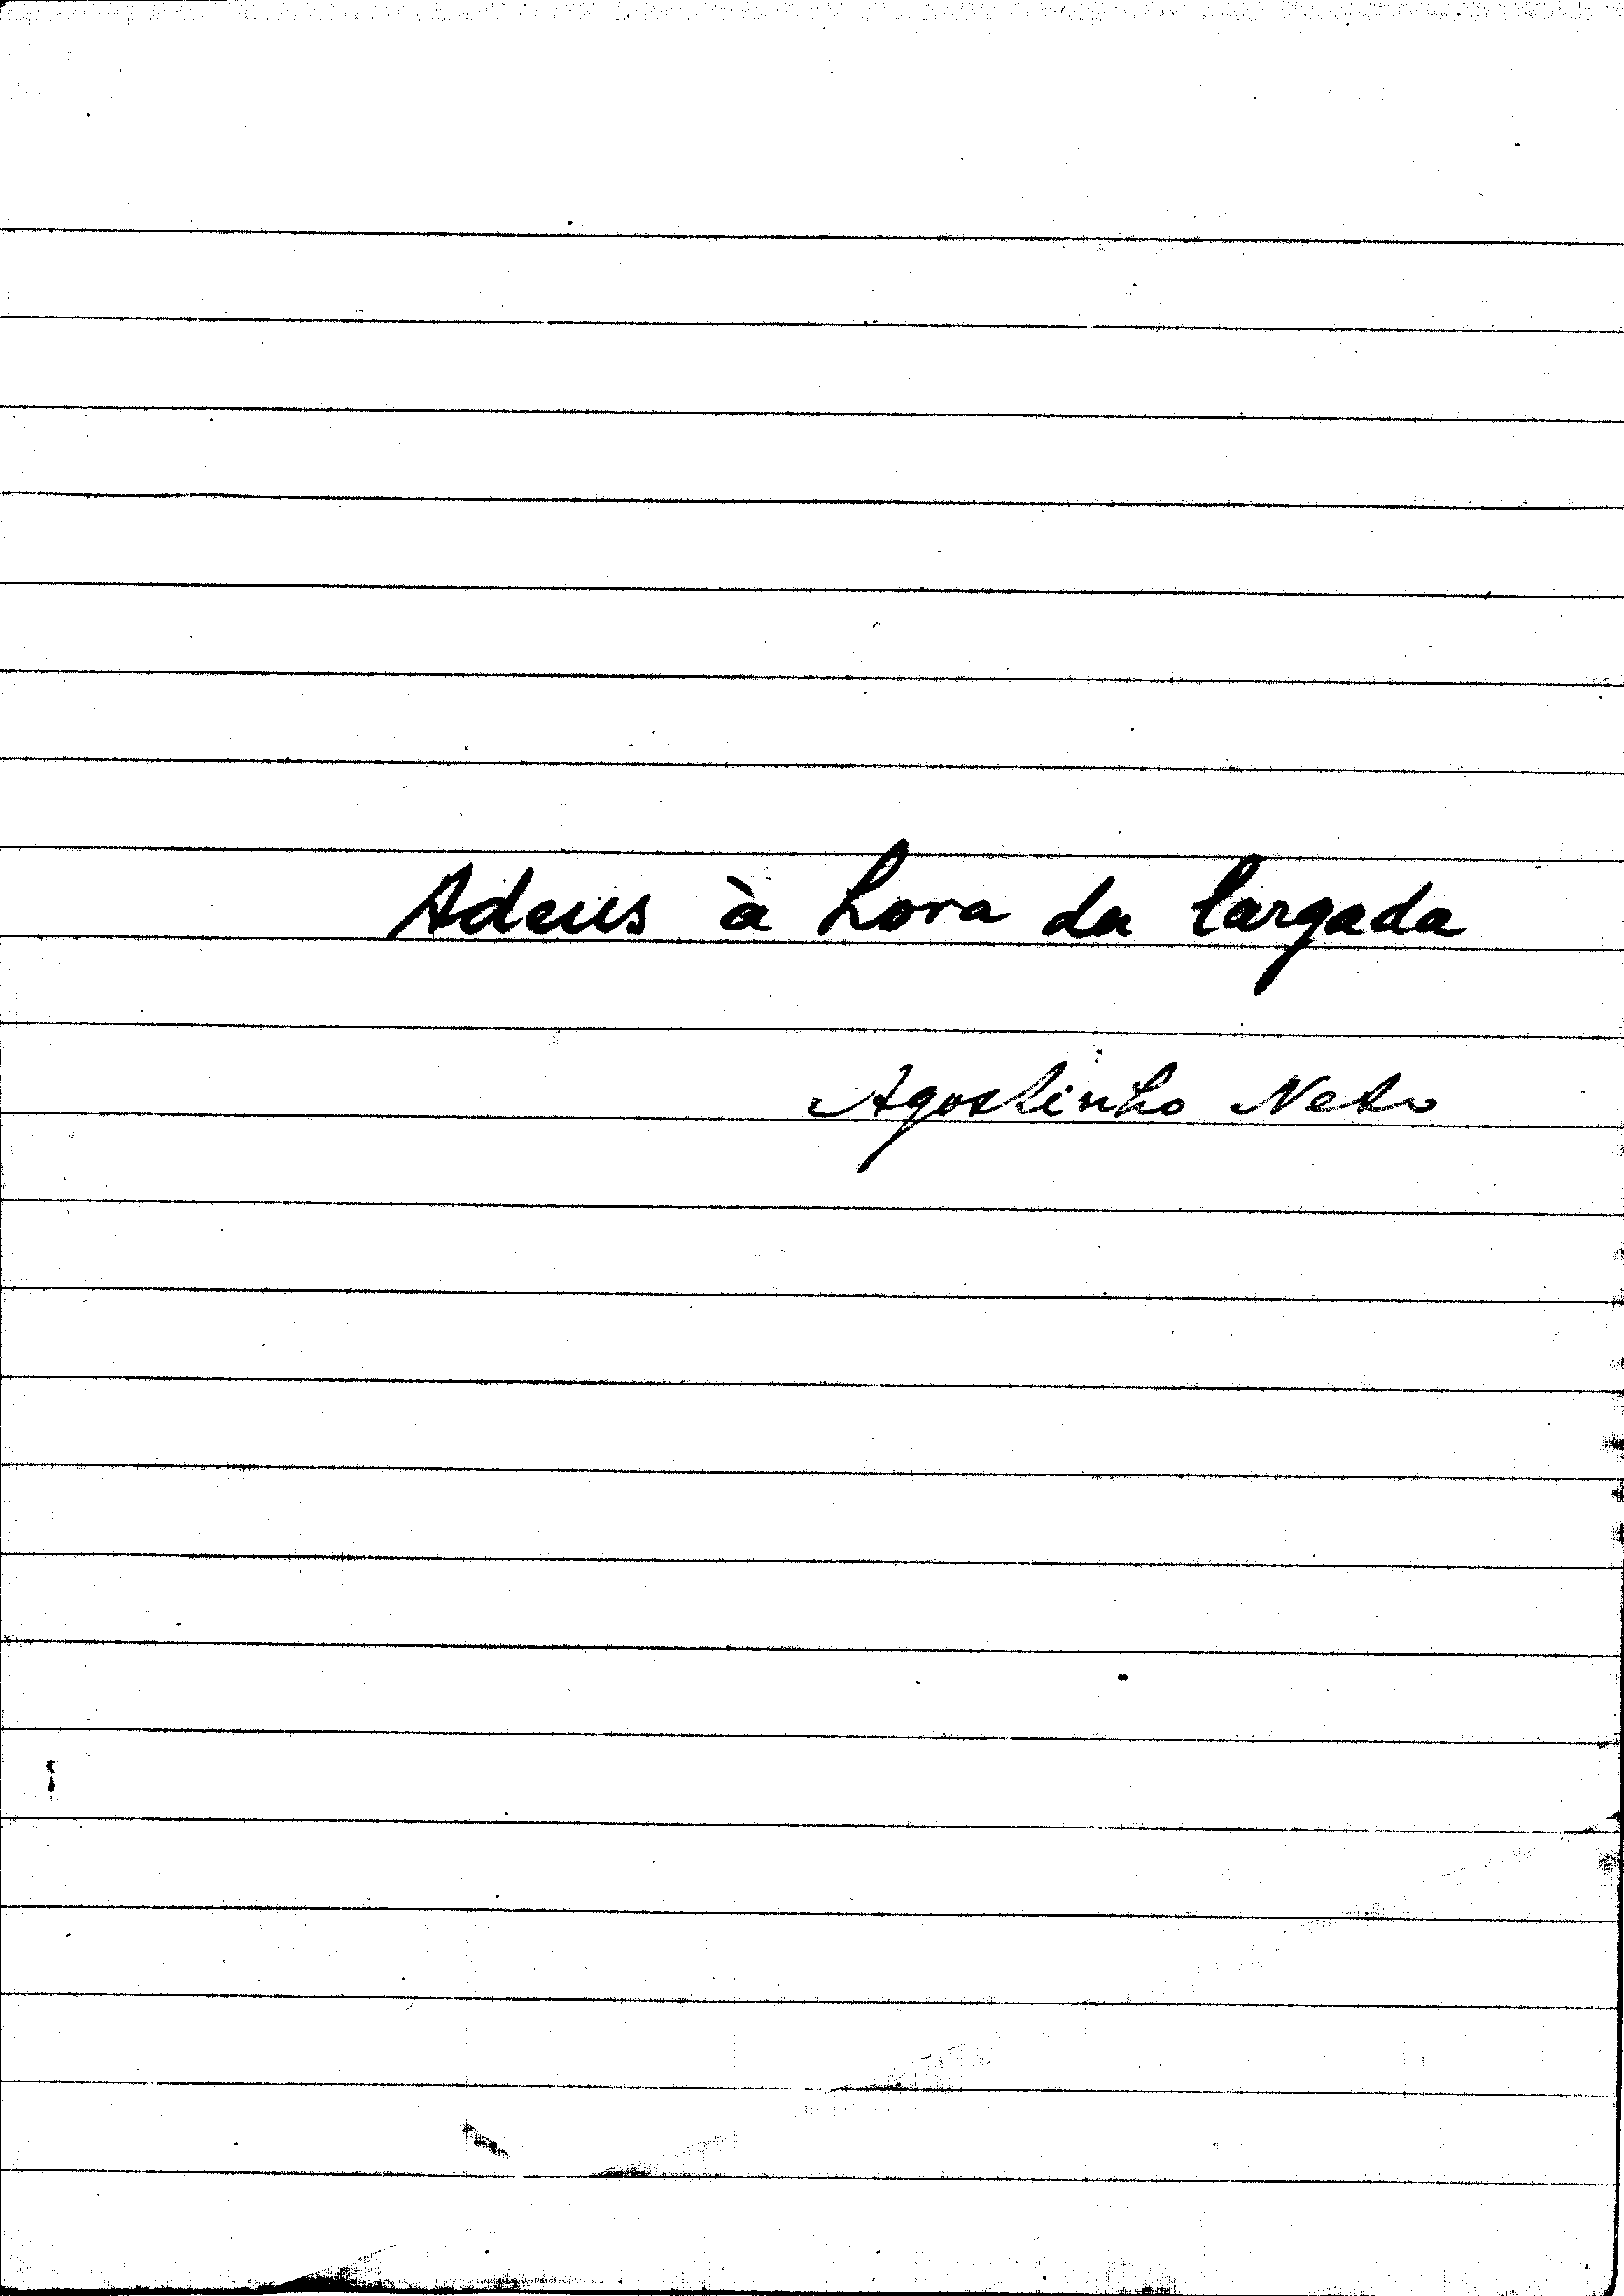 Adeus à hora da largada
Agostinho Neto